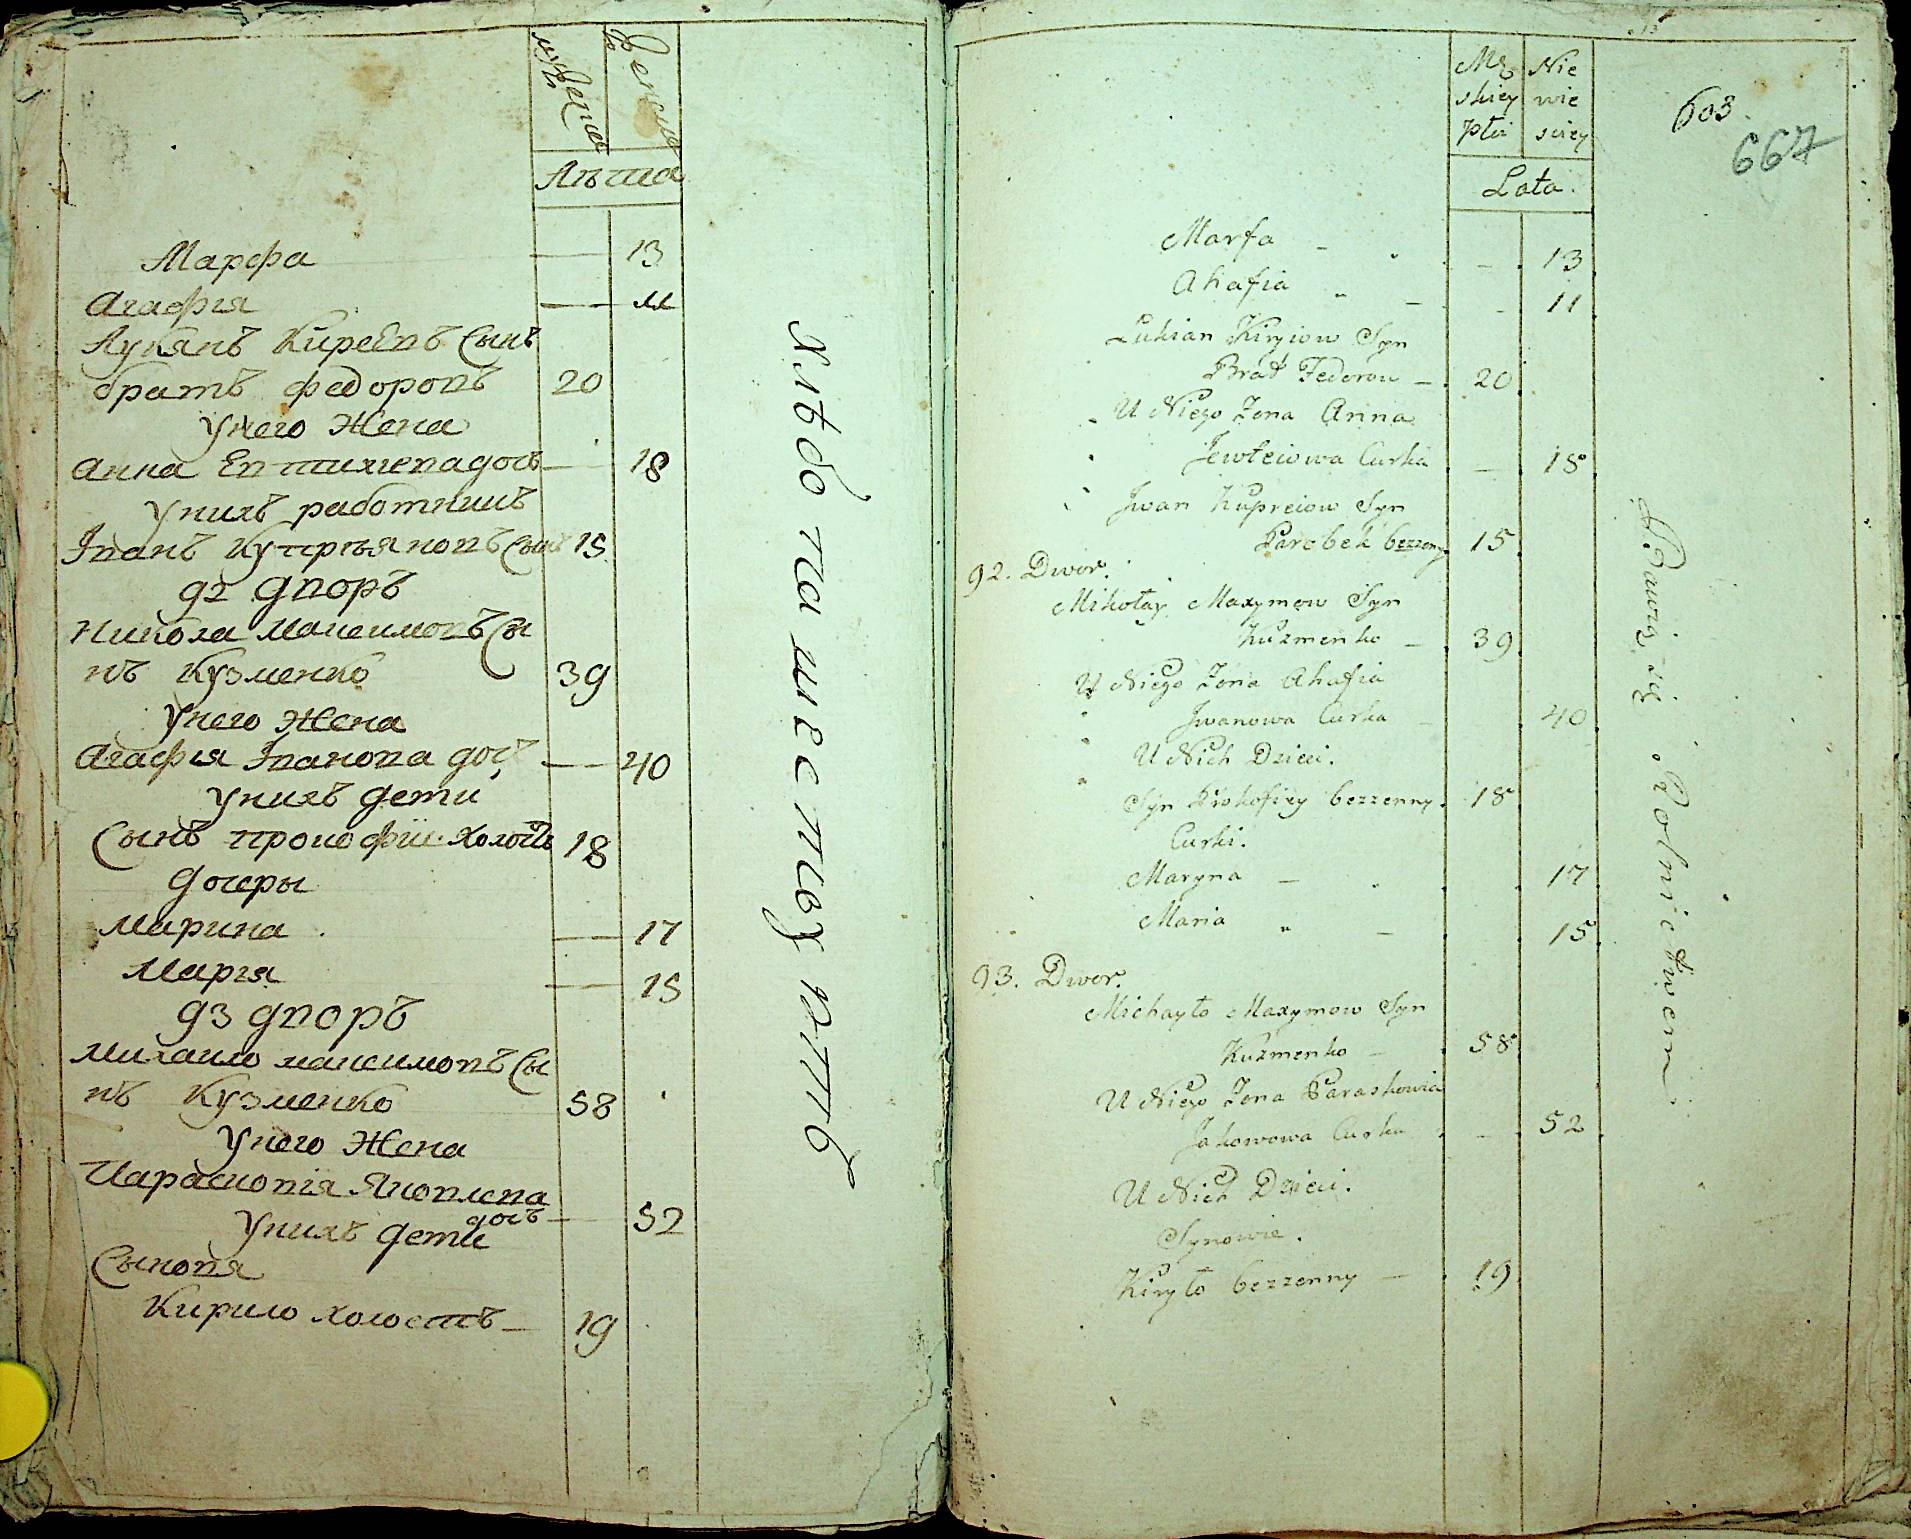 мужеска
женска
Лѣта
Марфа — 13
Агафия — 11
Лукянъ Киреевъ Сынъ
братъ федоровъ 20
Унего Жена
Анна Евтихиева дочь — 18
Унихъ работникъ
Іванъ Купрѣяновъ Сынъ 15
92 дворъ
Никола Максимовъ Сы
нъ Кузменко 39
Унего Жена
Агафия Іванова доч — 40
Унихъ дети
Сынъ прокофій холостъ 18
дочеры
Марина — 17
Мария — 15
93 дворъ
Михаило максимовъ Сы
нъ Кузменко 58
Унего Жена
Парасковія Яковлева
дочь — 52
Унихъ дети
Сыновя
Кирило холостъ — 19
Хлѣбопашествуютъ
603.
667
Męskiey Płci
Niewieściey
Lata.
Marfa - 13
Ahafia - 11
Lukian Kiryiow Syn
Brat Fedorow - 20
U Niego Zona Anna
Jewteiowa Curka - 18
Jwan Kupreiow Syn
Parobek bezzenny 15
92. Dwor.
Mikołay Maxymow Syn
Kuzmenko - 39
U Niego Zona Ahafia
Jwanowa Curka - 40
U Nich Dzieci.
Syn Prokofiey bezzenny. 18
Curki.
Maryna - 17
Maria - 15
93. Dwor.
Michayło Maxymow Syn
Kuzmenko - 58
U Niego Zona Paraskowia
Jakowowa Curka - 52
U Nich Dzieci.
Synowie.
Kiryło bezzenny - 19
Bawią się Rolnictwem